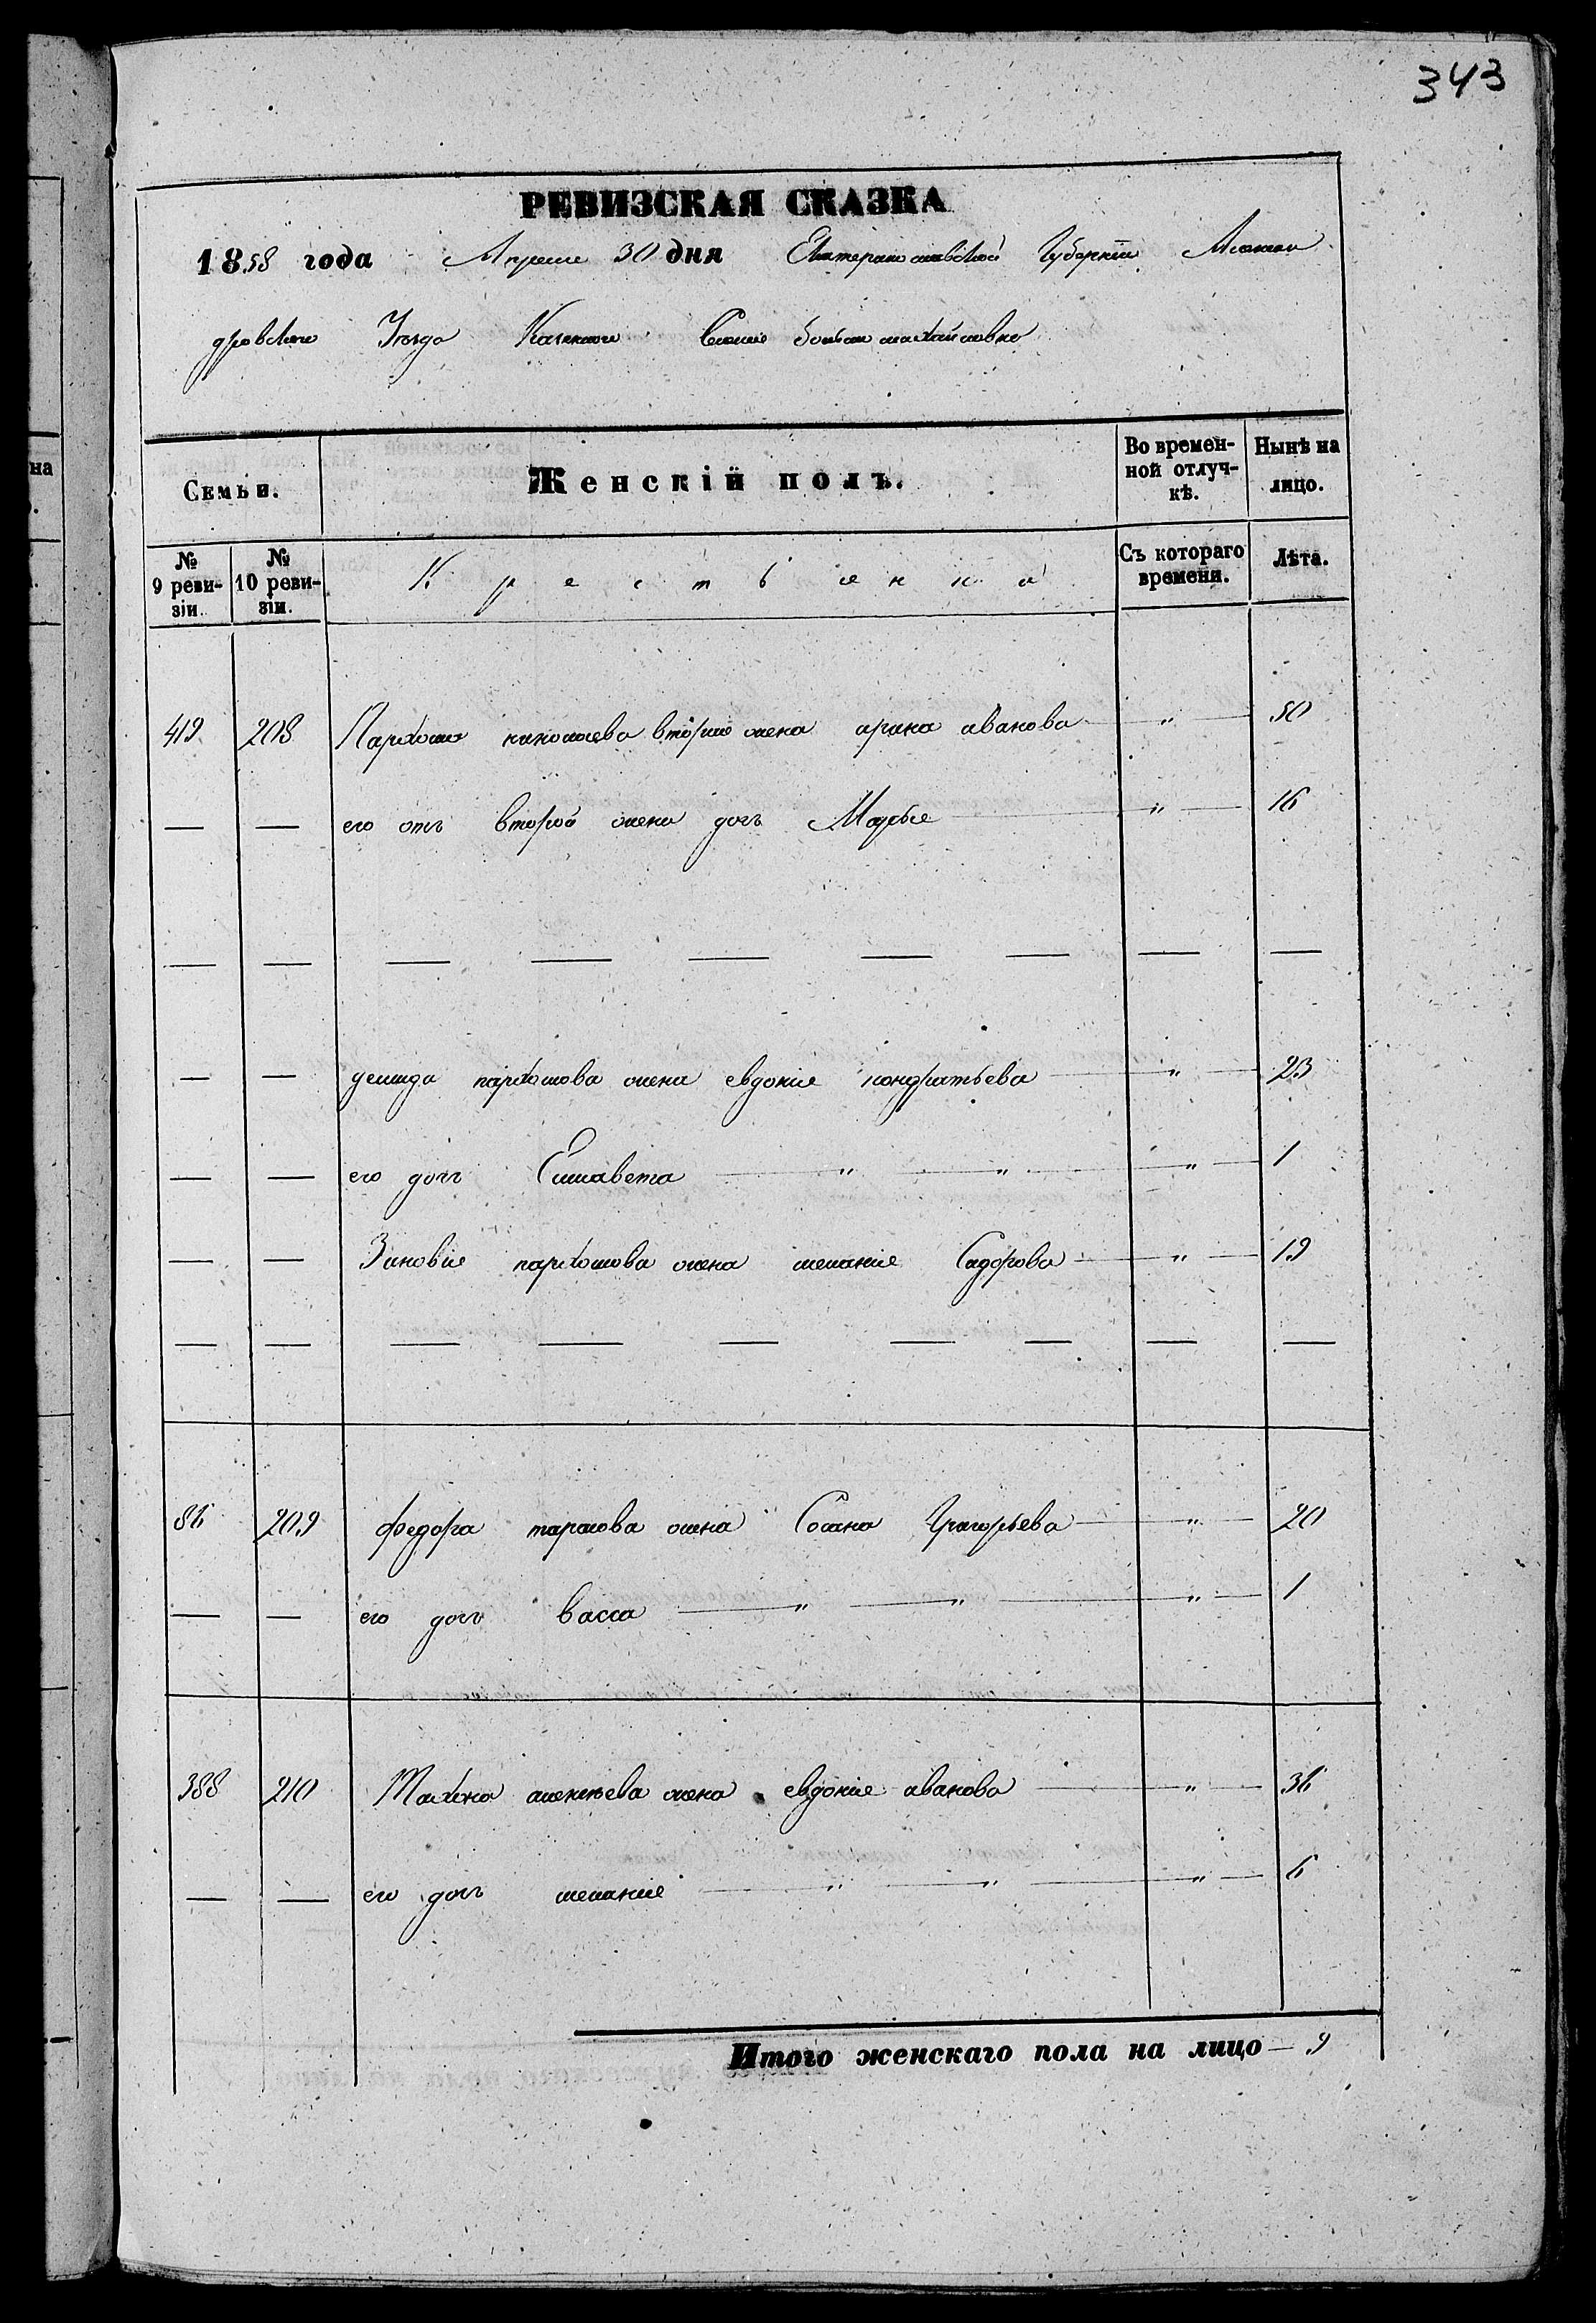 343
РЕВИЗСКАЯ СКАЗКА
1858 года Апреля 30 дня Екатеринославской Губернии Алексан
дровского Уезда Казенного Селения большой михайловки
Семьи. Женскій полъ. Во времен-ной отлуч-кѣ. Нынѣ на лицо.
№ 9 реви-зіи. № 10 реви-зіи. Съ котораго времени. Лѣта.
419 208 Пархома вторая жена арина иванова " 50
— — его отъ второй жены дочь Марья " 16
— — — — — — — — —
— — демида пархомова жена евдокия кондратьева " 23
— — его дочь Елисавета " " " 1
— — Зиновия пархомова жена мелания Сидорова " 19
— — — — — — — — —
86 209 федора тарасова жена Григорьева " 20
— — его дочь васса " " " 1
388 210 жена евдокия иванова " 36
— — его дочь мелания " " " 6
Итого женскаго пола на лицо — 9